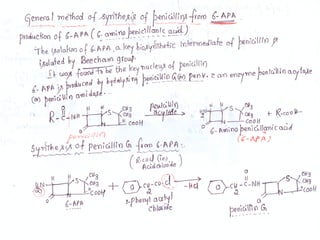 General method of synthesis of penicillins from 6-APA
production of 6-APA (6-amino penicillanic acid)
The isolation of 6-APA, a key biosynthetic intermediate of penicillin is
isolated by Beecham group.
It was found to be the key nucleus of penicillin
6-APA is produced by hydrolysing penicillin G (or) penV. c an enzyme penicillin acylase
(or) penicillin amidase.
R-C-NH
O
H H S CH3
CH3
COOH
N
O
penicillin
penicillin
acylase
H H S CH3
CH3
COOH
N
O
+ R-COOH
6-Amino penicillanic acid
(6-APA)
Synthesis of Penicillin G from 6-APA:
R-COCl (in)
Acid chloride
H2N
S CH3
CH3
COOH
N
O
6-APA
+
CH2-CO-Cl
2-phenyl acetyl
chloride
-HCl
CH2-C-NH
O
S CH3
CH3
COOH
N
O
penicillin G